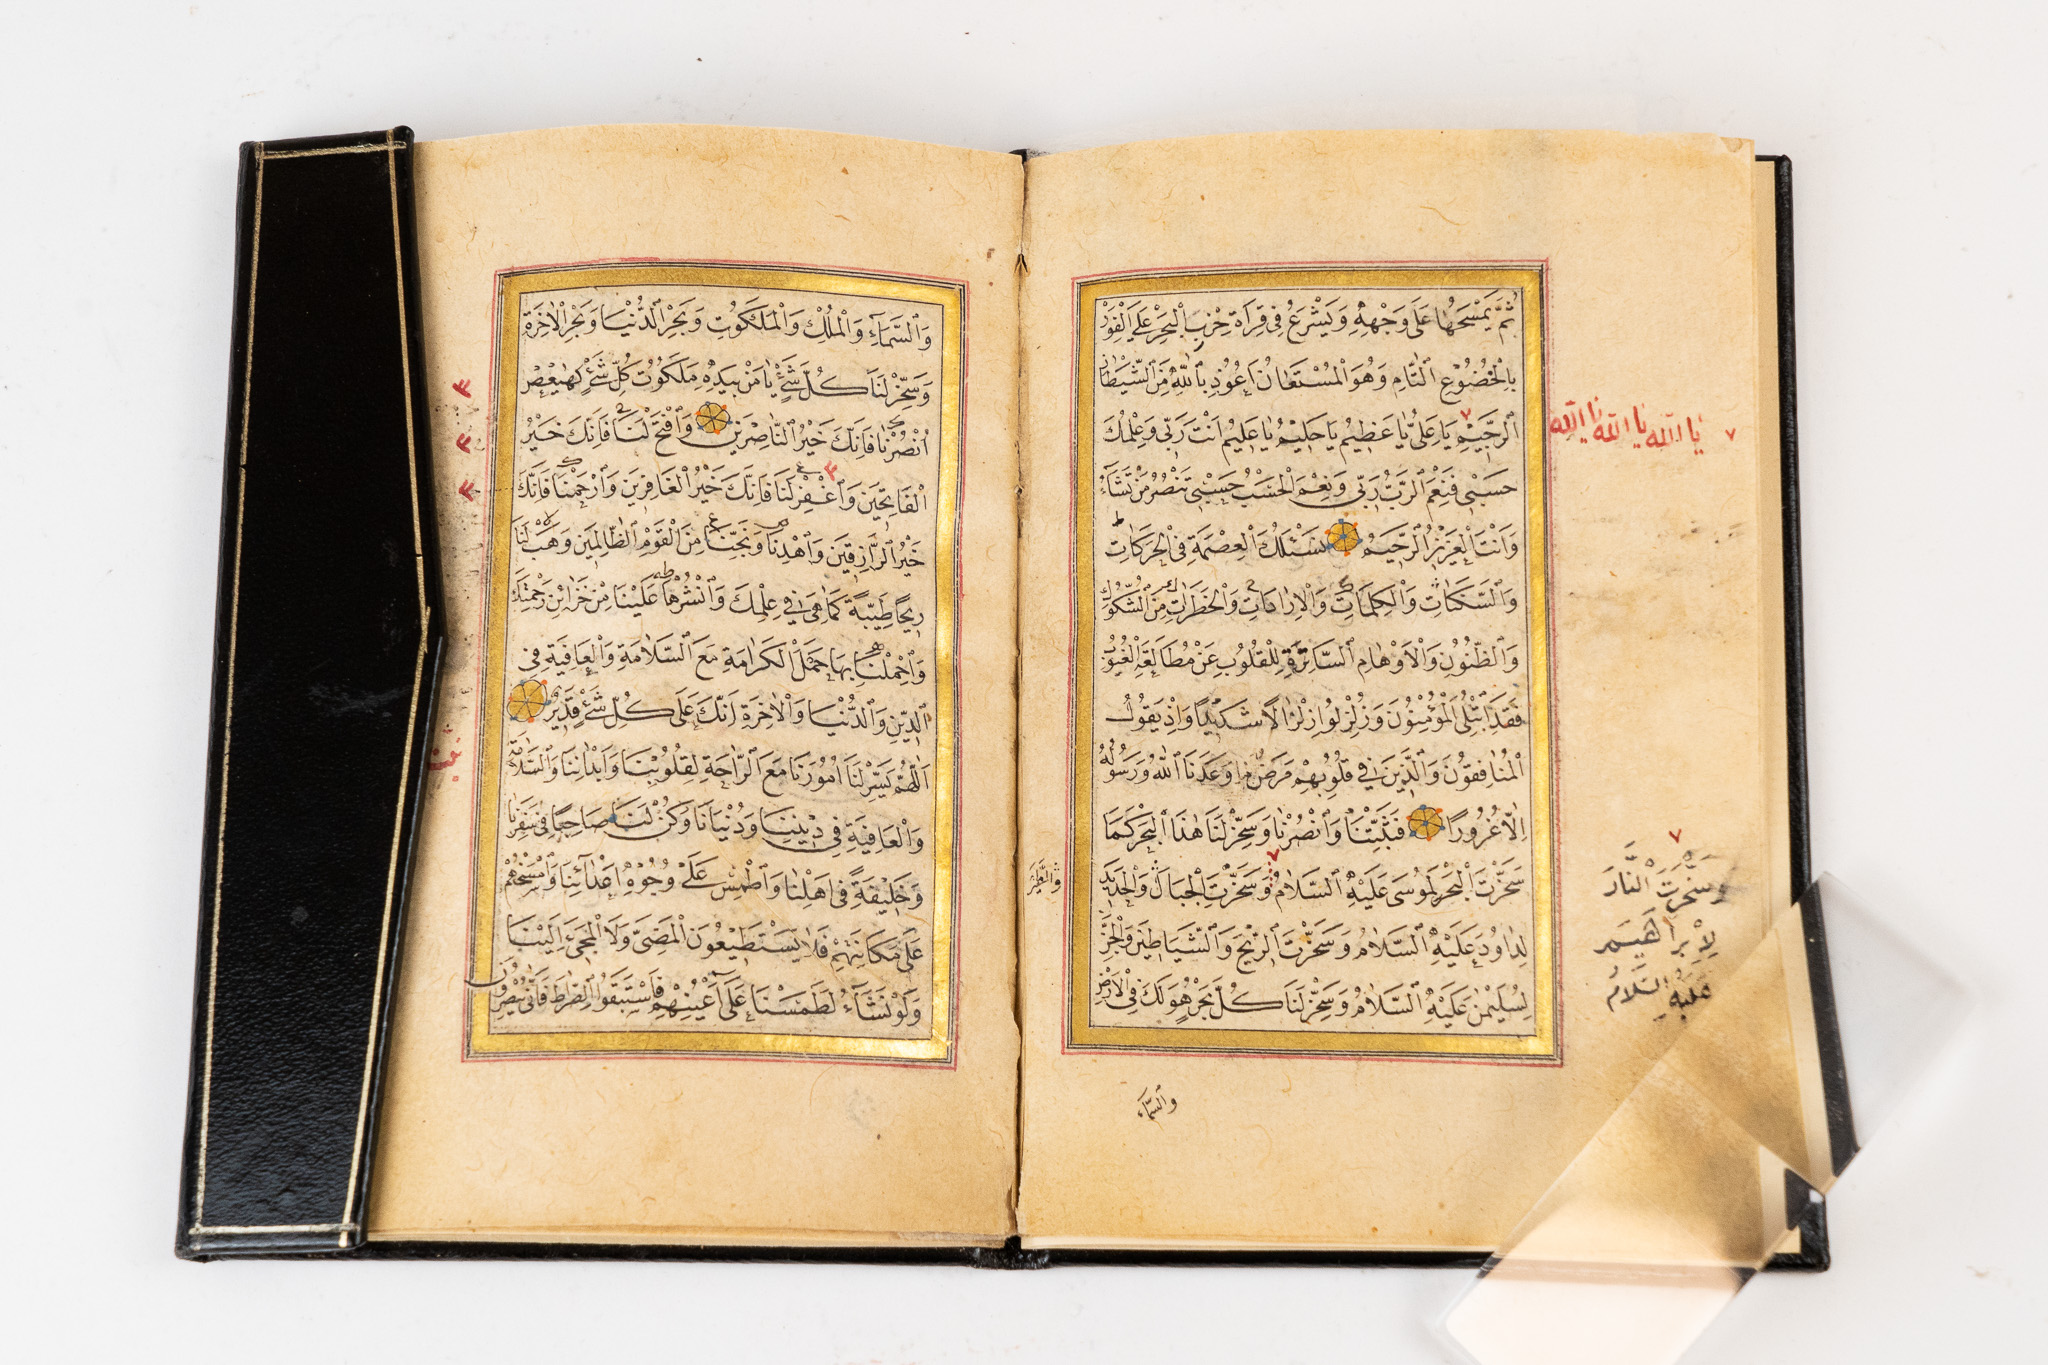 ثُمَّ يَمْسَحُهَا عَلَى وَجْهِهِ وَيَشْرَعُ فِى قِرَاءَة حِزْبِ الْبَحْرِ عَلَى الْفَوْرِ
بِالْخُضُوعِ التَّامِ وَهُوَ الْمُسْتَعَانُ اَعُوذُ بِاللّٰهِ مِنَ الشَّيْطَانِ
الرَّجِيمِ يَا عَلِىُّ يَا عَظِيمُ يَا حَلِيمُ يَا عَلِيمُ اَنْتَ رَبِّى وَعِلْمُكَ
حَسْبِى فَنِعْمَ الرَّبُّ رَبِّى وَنِعْمَ الْحَسْبُ حَسْبِى تَنْصُرُ مَنْ تَشَاءُ
وَاَنْتَ الْعَزِيزُ الرَّحِيمُ نَسْئَلُكَ الْعِصْمَةَ فِى الْحَرَكَاتِ
وَالسَّكَنَاتِ وَالْكَلِمَاتِ وَالْاِرَادَاتِ وَالْخَطَرَاتِ مِنَ الشُّكُوكِ
وَالظُّنُونِ وَالْاَوْهَامِ السَّاتِرَةِ لِلْقُلُوبِ عَنْ مُطَالَعَةِ الْغُيُوبِ
فَقَدِ ابْتُلِىَ الْمُؤْمِنُونَ وَزُلْزِلُوا زِلْزَالًا شَدِيدًا وَاِذْ يَقُولُ
الْمُنَافِقُونَ وَالَّذِينَ فِى قُلُوبِهِمْ مَرَضٌ مَا وَعَدَنَا اللّٰهُ وَرَسُولُهُ
اِلَّا غُرُورًا فَثَبِّتْنَا وَانْصُرْنَا وَسَخِّرْ لَنَا هٰذَا الْبَحْرَ كَمَا
سَخَّرْتَ الْبَحْرَ لِمُوسَى عَلَيْهِ السَّلَامُ وَسَخَّرْتَ الْجِبَالَ وَالْحَدِيدَ
لِدَاوُدَ عَلَيْهِ السَّلَامُ وَسَخَّرْتَ الرِّيحَ وَالشَّيَاطِينَ وَالْجِنَّ
لِسُلَيْمٰنَ عَلَيْهِ السَّلَامُ وَسَخِّرْ لَنَا كُلَّ بَحْرٍ هُوَ لَكَ فِى الْاَرْضِ
وَالسَّمَاءِ
يَا اَللّٰه يَا اَللّٰه يَا اَللّٰه ٧
٧
وَسَخَّرْتَ النَّارَ
لِاِبْرَاهِيمَ
عَلَيْهِ السَّلَامُ
وَالسَّمَاءِ وَالْمُلْكِ وَالْمَلَكُوتِ وَبَحْرَ الدُّنْيَا وَبَحْرَ الْاٰخِرَةِ
وَسَخِّرْ لَنَا كُلَّ شَىْءٍ يَا مَنْ بِيَدِهِ مَلَكُوتُ كُلِّ شَىْءٍ كهٰيٰعص
اُنْصُرْنَا فَاِنَّكَ خَيْرُ النَّاصِرِينَ وَافْتَحْ لَنَا فَاِنَّكَ خَيْرُ
الْفَاتِحِينَ وَاغْفِرْ لَنَا فَاِنَّكَ خَيْرُ الْغَافِرِينَ وَارْحَمْنَا فَاِنَّكَ
خَيْرُ الرَّازِقِينَ وَاهْدِنَا وَنَجِّنَا مِنَ الْقَوْمِ الظَّالِمِينَ وَهَبْ لَنَا
رِيحًا طَيِّبَةً كَمَا هِىَ فِى عِلْمِكَ وَانْشُرْهَا عَلَيْنَا مِنْ خَزَائِنِ رَحْمَتِكَ
وَاحْمِلْنَا بِهَا حَمْلَ الْكَرَامَةِ مَعَ السَّلَامَةِ وَالْعَافِيَةِ فِى
الدِّينِ وَالدُّنْيَا وَالْاٰخِرَةِ اِنَّكَ عَلَى كُلِّ شَىْءٍ قَدِيرٌ
اَللّٰهُمَّ يَسِّرْ لَنَا اُمُورَنَا مَعَ الرَّاحَةِ لِقُلُوبِنَا وَاَبْدَانِنَا وَالسَّلَامَةِ
وَالْعَافِيَةِ فِى دِينِنَا وَدُنْيَانَا وَكُنْ لَنَا صَاحِبًا فِى سَفَرِنَا
وَخَلِيفَةً فِى اَهْلِنَا وَاطْمِسْ عَلَى وُجُوهِ اَعْدَائِنَا وَامْسَخْهُمْ
عَلَى مَكَانَتِهِمْ فَلَا يَسْتَطِيعُونَ الْمُضِىَّ وَلَا الْمَجِىءَ اِلَيْنَا
وَلَوْ نَشَاءُ لَطَمَسْنَا عَلَى اَعْيُنِهِمْ فَاسْتَبَقُوا الصِّرَاطَ فَاَنَّى يُبْصِرُونَ
٣
٣
٣